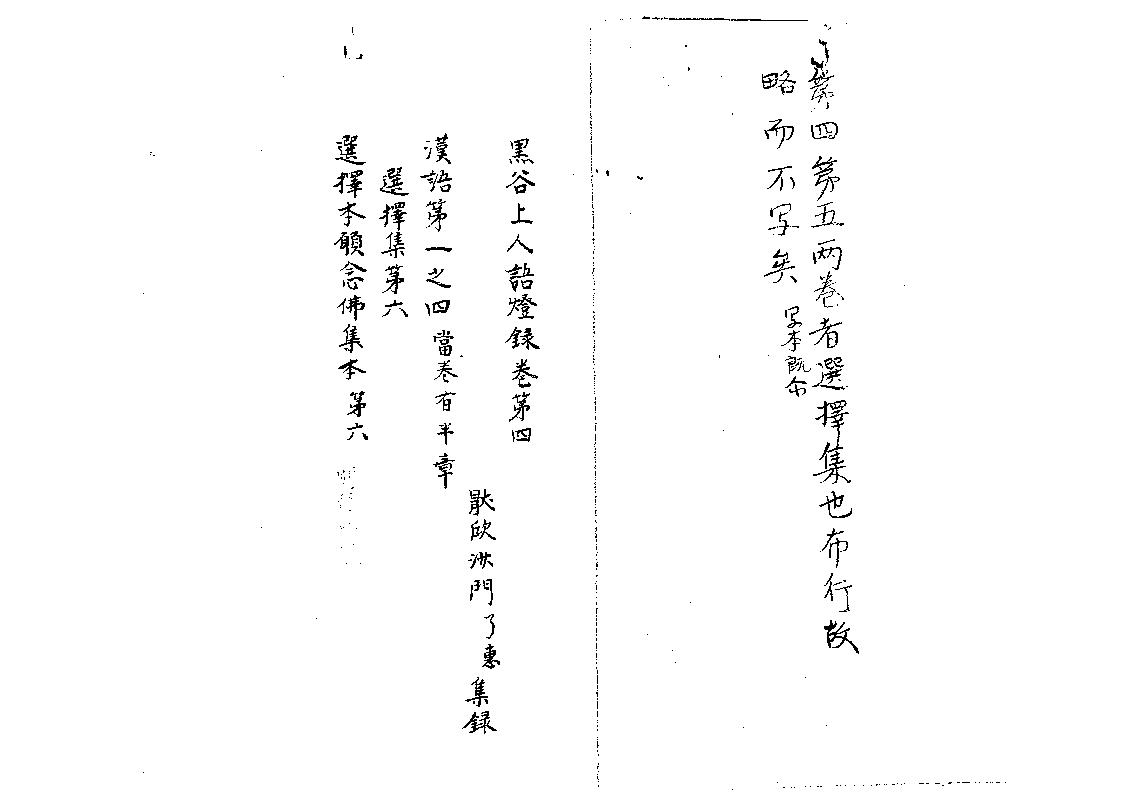 第四第五両巻者選擇集也布行故
略而不写矣
写本既尓
黒谷上人語燈録巻第四
厭欣沙門了惠集録
漢語第一之四 當巻有半章
選擇集第六
選擇本願念佛集本 第六